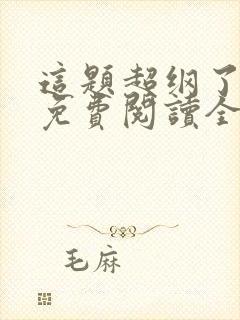 這題超纲了
免費閱讀全
毛麻